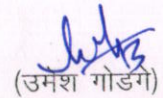 (उमेश गोडगे)